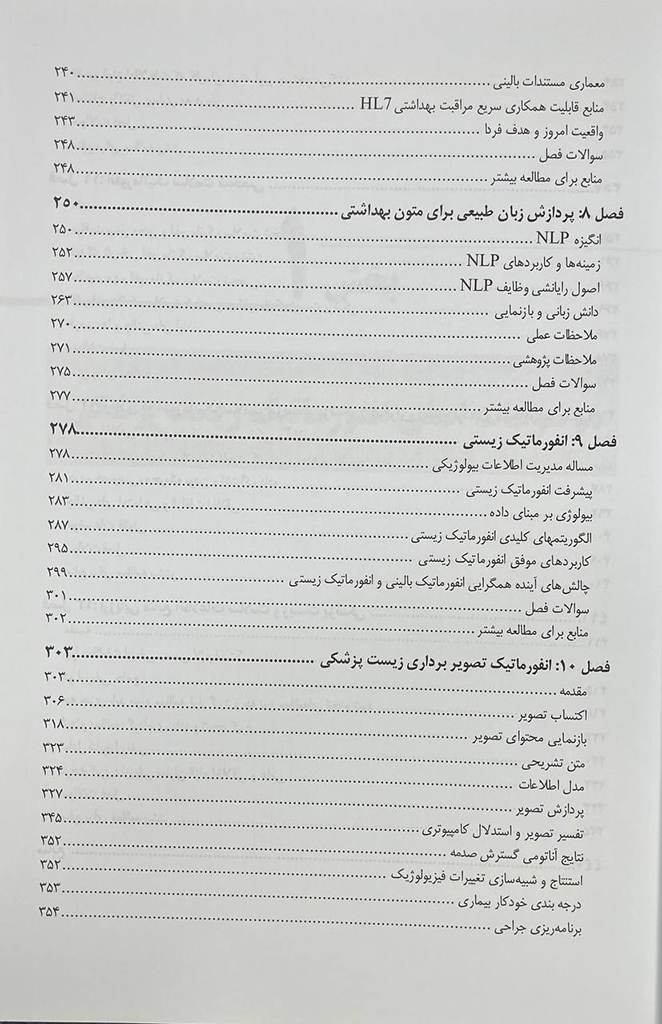 معماری مستندات بالینی ........ ۲۴۰
منابع قابلیت همکاری سریع مراقبت بهداشتی HL7 ........ ۲۴۱
واقعیت امروز و هدف فردا ........ ۲۴۳
سوالات فصل ........ ۲۴۸
منابع برای مطالعه بیشتر ........ ۲۴۸
فصل ۸: پردازش زبان طبیعی برای متون بهداشتی ........ ۲۵۰
انگیزه NLP ........ ۲۵۰
زمینه‌ها و کاربردهای NLP ........ ۲۵۲
اصول رایانشی وظایف NLP ........ ۲۵۷
دانش زبانی و بازنمایی ........ ۲۶۳
ملاحظات عملی ........ ۲۷۰
ملاحظات پژوهشی ........ ۲۷۱
سوالات فصل ........ ۲۷۵
منابع برای مطالعه بیشتر ........ ۲۷۷
فصل ۹: انفورماتیک زیستی ........ ۲۷۸
مساله مدیریت اطلاعات بیولوژیکی ........ ۲۷۸
پیشرفت انفورماتیک زیستی ........ ۲۸۱
بیولوژی بر مبنای داده ........ ۲۸۳
الگوریتمهای کلیدی انفورماتیک زیستی ........ ۲۸۷
کاربردهای موفق انفورماتیک زیستی ........ ۲۹۵
چالش‌های آینده همگرایی انفورماتیک بالینی و انفورماتیک زیستی ........ ۲۹۹
سوالات فصل ........ ۳۰۱
منابع برای مطالعه بیشتر ........ ۳۰۲
فصل ۱۰: انفورماتیک تصویر برداری زیست پزشکی ........ ۳۰۳
مقدمه ........ ۳۰۳
اکتساب تصویر ........ ۳۰۶
بازنمایی محتوای تصویر ........ ۳۱۸
متن تشریحی ........ ۳۲۳
مدل اطلاعات ........ ۳۲۴
پردازش تصویر ........ ۳۲۷
تفسیر تصویر و استدلال کامپیوتری ........ ۳۴۵
نتایج آناتومی گسترش صدمه ........ ۳۵۲
استنتاج و شبیه‌سازی تغییرات فیزیولوژیک ........ ۳۵۲
درجه بندی خودکار بیماری ........ ۳۵۳
برنامه‌ریزی جراحی ........ ۳۵۴